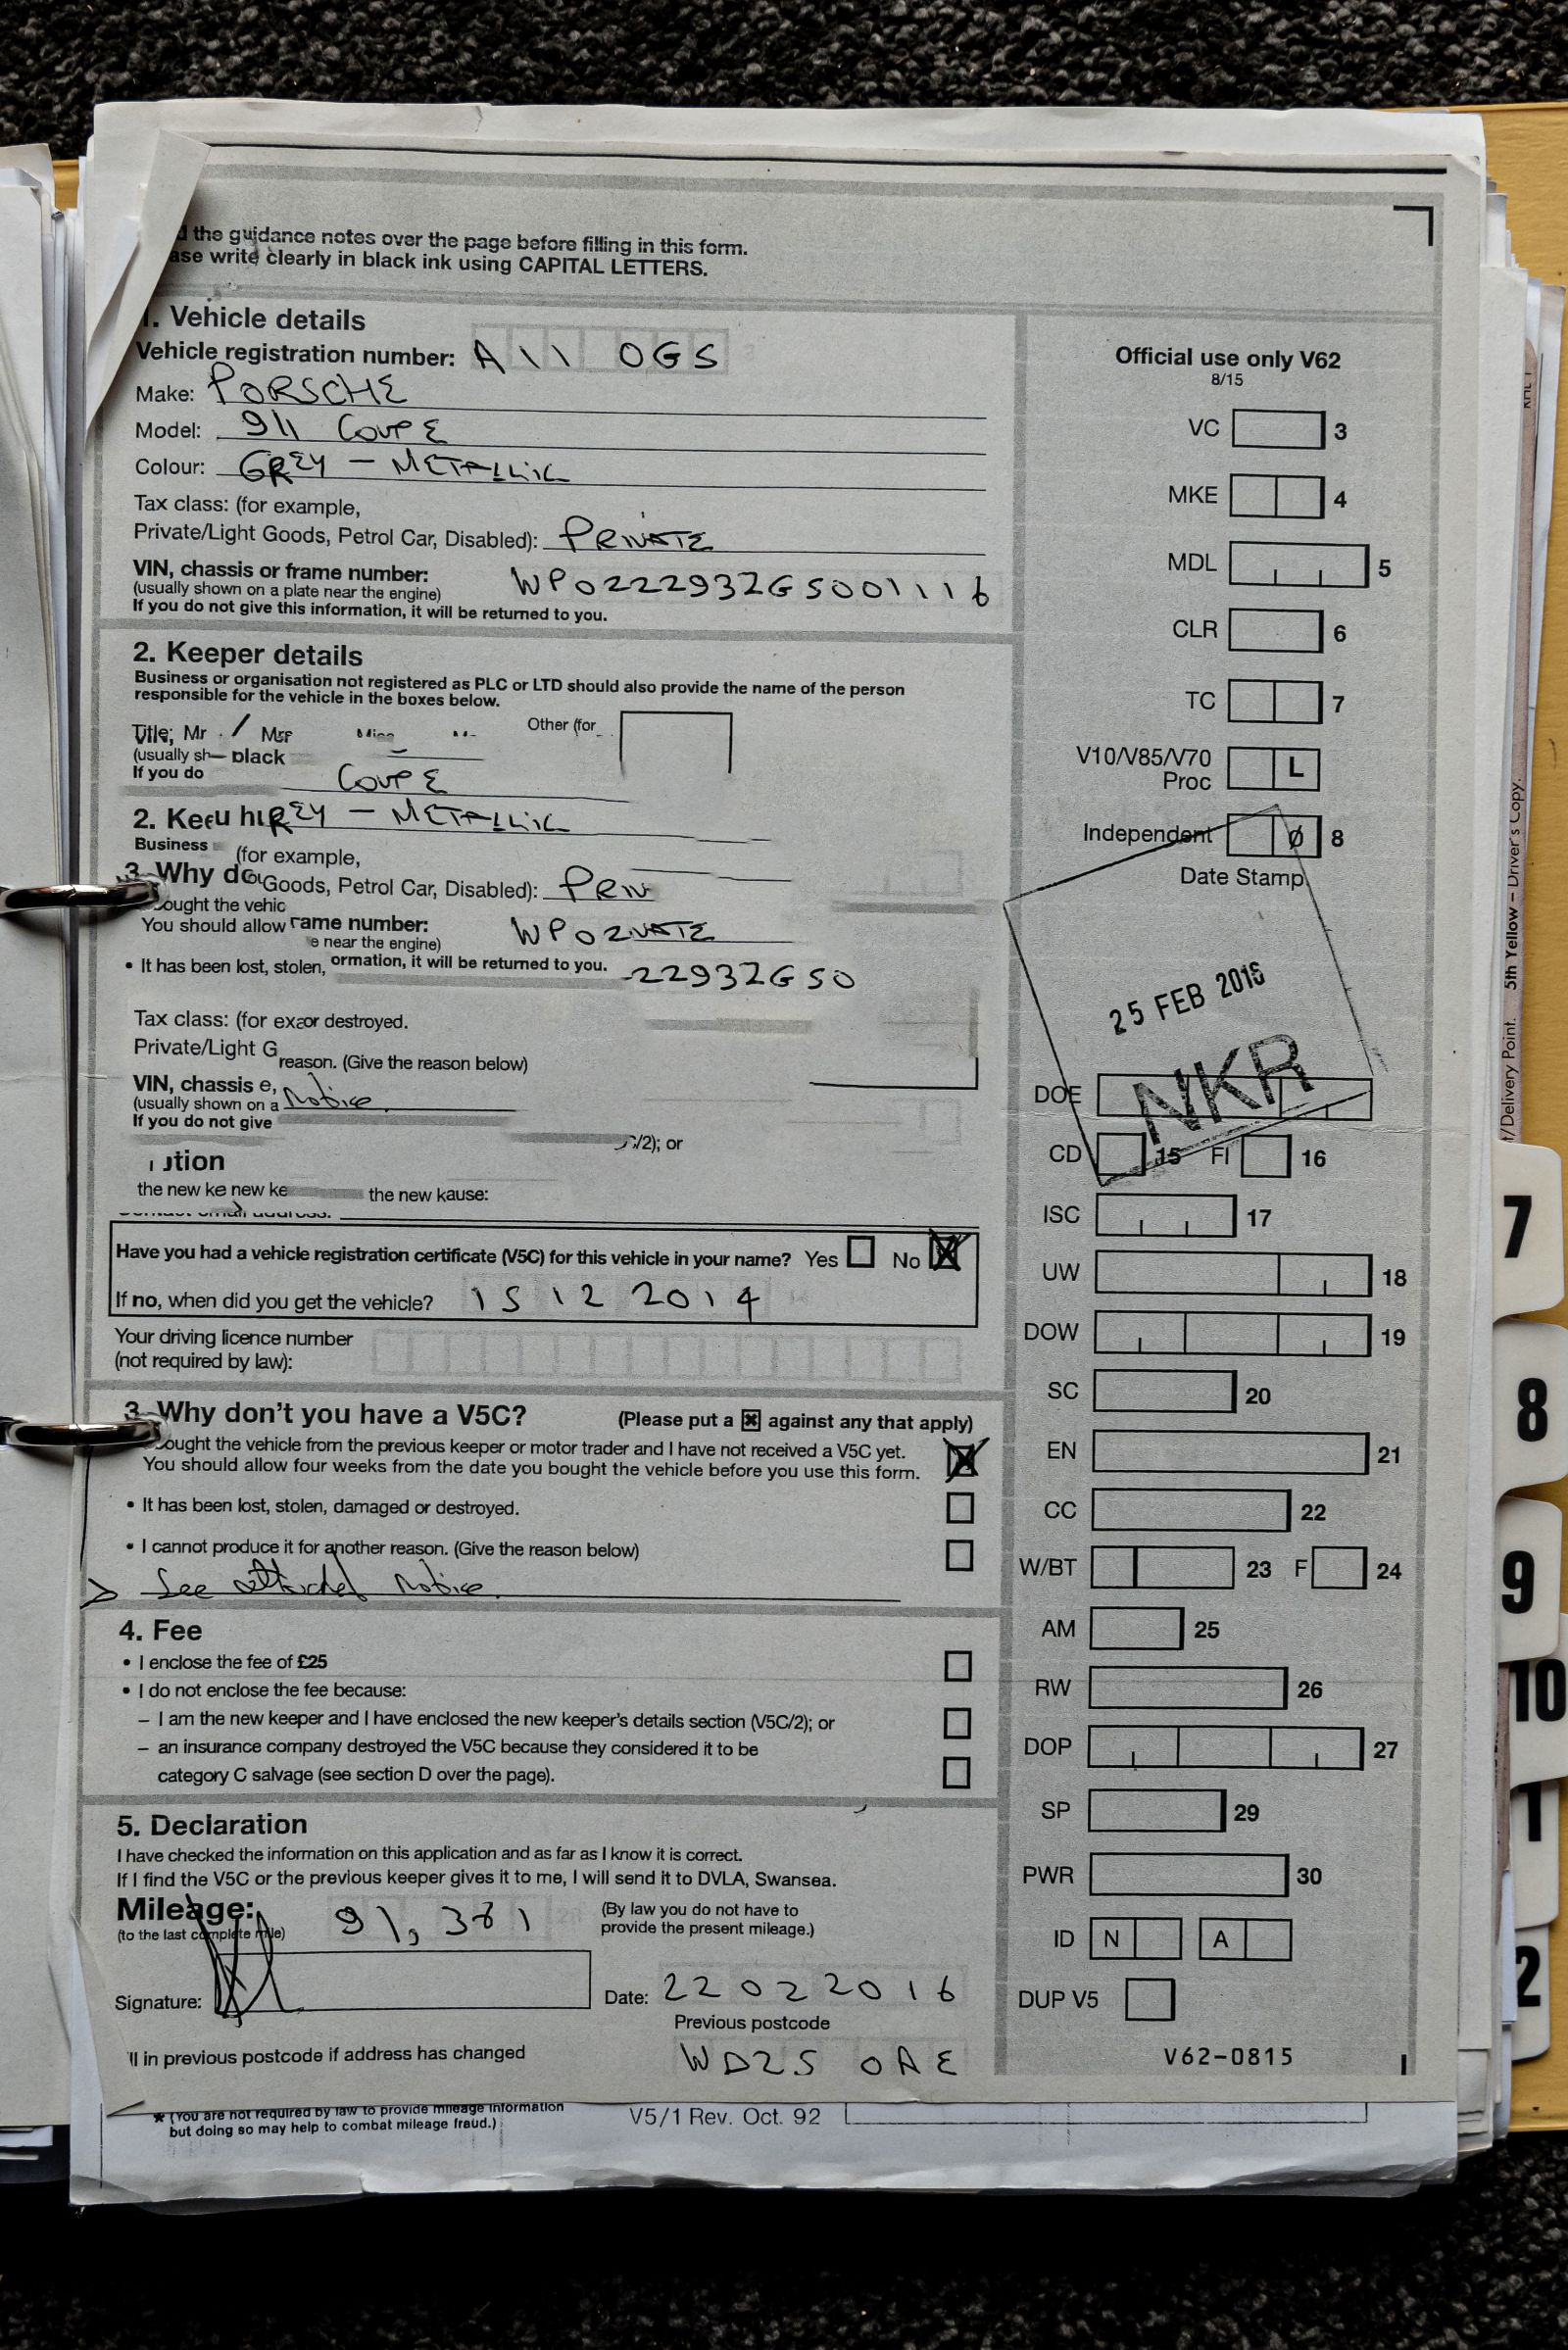 d the guidance notes over the page before filling in this form.
ase write clearly in black ink using CAPITAL LETTERS.
1. Vehicle details
Vehicle registration number: A11 OGS
Make: PORSCHE
Model: 911 COUPE
Colour: GREY – METALLIC
Tax class: (for example,
Private/Light Goods, Petrol Car, Disabled): PRIVATE
VIN, chassis or frame number:
(usually shown on a plate near the engine)
WP0222932GS001116
If you do not give this information, it will be returned to you.
2. Keeper details
Business or organisation not registered as PLC or LTD should also provide the name of the person
responsible for the vehicle in the boxes below.
Title; Mr / Other (for
(usually sh black
If you do
COUPE
2. Kee
REY – METALLIC
Business
(for example,
3. Why do
Goods, Petrol Car, Disabled): PRIV
ought the vehic
You should allow rame number:
e near the engine)
WP02 VATE
• It has been lost, stolen, ormation, it will be returned to you.
22932GS0
Tax class: (for exaor destroyed.
Private/Light G reason. (Give the reason below)
VIN, chassis e,
(usually shown on a Notice
If you do not give
/2); or
ution
the new ke new ke the new kause:
Have you had a vehicle registration certificate (V5C) for this vehicle in your name? Yes No
If no, when did you get the vehicle? 15 12 2014
Your driving licence number
(not required by law):
3. Why don't you have a V5C? (Please put a ☒ against any that apply)
ought the vehicle from the previous keeper or motor trader and I have not received a V5C yet.
You should allow four weeks from the date you bought the vehicle before you use this form.
• It has been lost, stolen, damaged or destroyed.
• I cannot produce it for another reason. (Give the reason below)
> See attached Notice
4. Fee
• I enclose the fee of £25
• I do not enclose the fee because:
– I am the new keeper and I have enclosed the new keeper's details section (V5C/2); or
– an insurance company destroyed the V5C because they considered it to be
category C salvage (see section D over the page).
5. Declaration
I have checked the information on this application and as far as I know it is correct.
If I find the V5C or the previous keeper gives it to me, I will send it to DVLA, Swansea.
Mileage: 91,381
(to the last complete mile)
(By law you do not have to
provide the present mileage.)
Signature:
Date: 22 02 2016
Previous postcode
'll in previous postcode if address has changed
WD25 0AE
* (You are not required by law to provide mileage information
but doing so may help to combat mileage fraud.)
V5/1 Rev. Oct. 92
Official use only V62
8/15
VC 3
MKE 4
MDL 5
CLR 6
TC 7
V10/V85/V70
Proc L
Independent Ø 8
Date Stamp
25 FEB 2016
NKR
DOE
CD 15 FI 16
ISC 17
UW 18
DOW 19
SC 20
EN 21
CC 22
W/BT 23 F 24
AM 25
RW 26
DOP 27
SP 29
PWR 30
ID N A
DUP V5
V62-0815
t/Delivery Point. 5th Yellow – Driver's Copy.
7
8
9
10
1
2